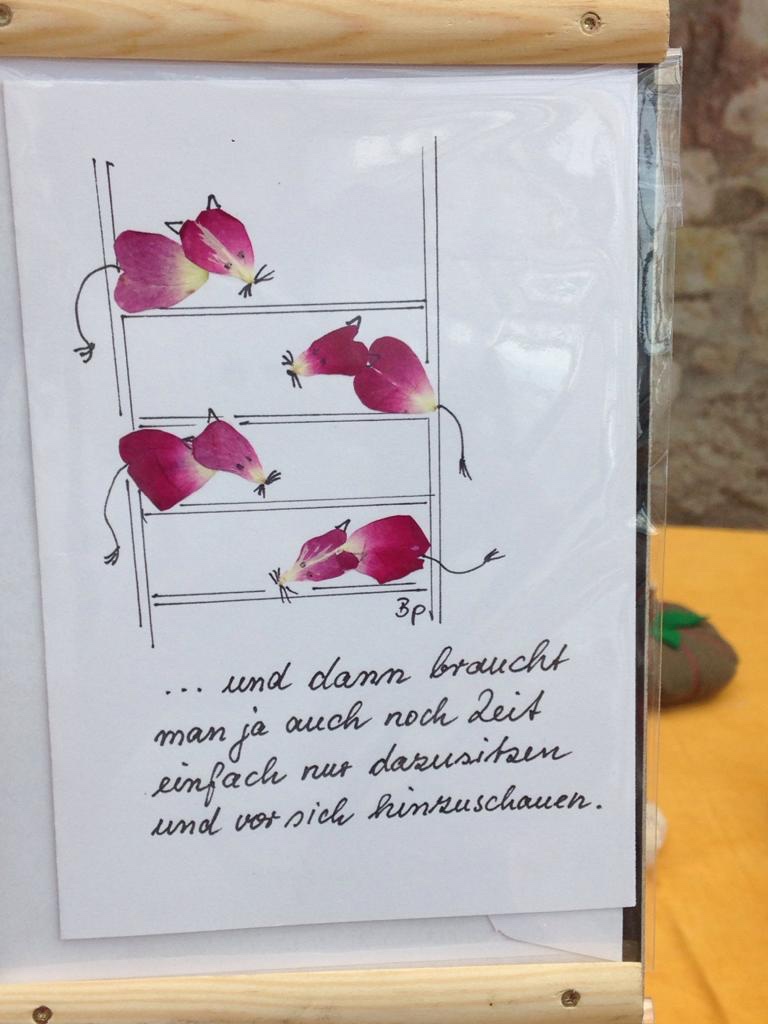 Bp
... und dann braucht
man ja auch noch Zeit
einfach nur dazusitzen
und vor sich hinzuschauen.